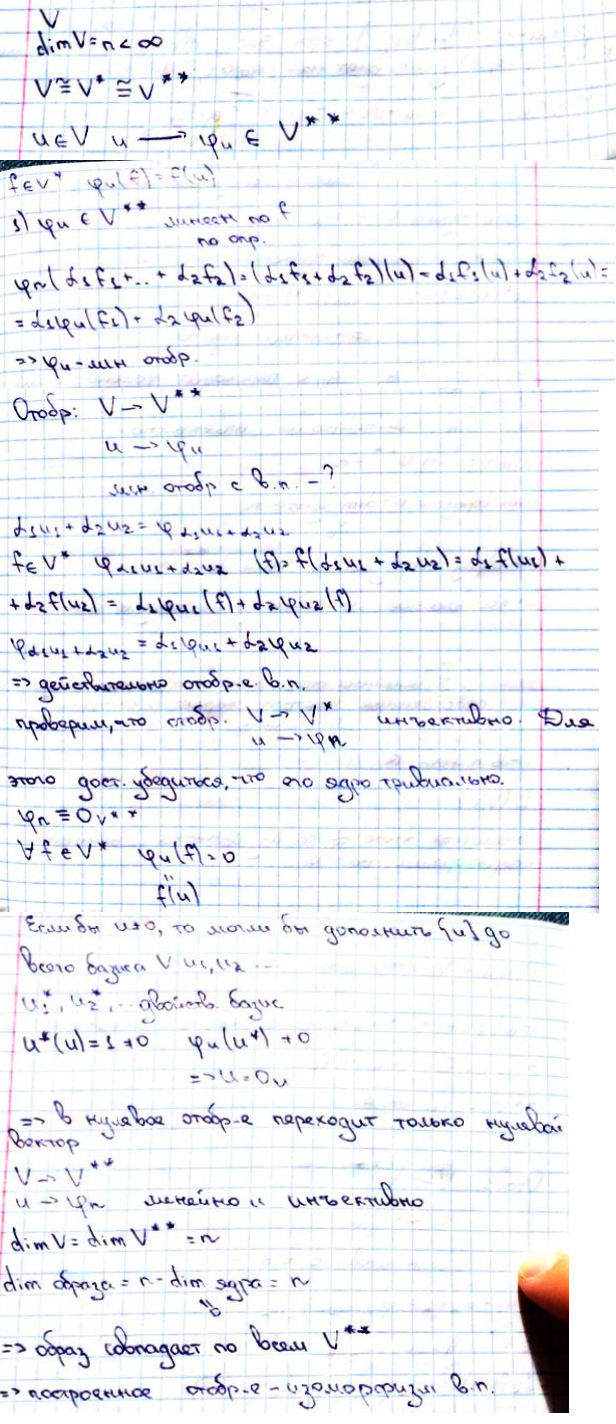 V
dim V = n < ∞
V ≅ V* ≅ V**
u ∈ V u ⟶ φu ∈ V**
f ∈ V* φu(f) = f(u)
1) φu ∈ V** линеен по f
по опр.
φn(α1f1 + .. + α2f2) = (α1f1 + α2f2)(u) = α1f1(u) + α2f2(u) =
= α1φu(f1) + α2φu(f2)
=> φu - лин отобр.
Отобр: V → V**
u → φu
лин. отобр с в.п. - ?
α1u1 + α2u2 = φα1u1+α2u2
f ∈ V* φα1u1+α2u2 (f) = f(α1u1 + α2u2) = α1f(u1) +
+ α2f(u2) = α1φu1(f) + α2φu2(f)
φα1u1+α2u2 = α1φu1 + α2φu2
=> действительно отобр-е. в.п.
проверим, что отобр. V → V* инъективно. Для
u → φn
этого дост. убедиться, что его ядро тривиально.
φn ≡ 0v**
∀f ∈ V* φu(f) = 0
"
f(u)
Если бы u≠0, то могли бы дополнить {u} до
всего базиса V u1, u2 ...
u1*, u2*, .. двойств. базис
u*(u) = 1 ≠ 0 φu(u*) ≠ 0
=> u = 0u
=> в нулевое отобр-е переходит только нулевой
вектор
V → V**
u → φn линейно и инъективно
dim V = dim V** = n
dim образа = n - dim ядра = n
"0
=> образ совпадает по всем V**
=> построенное отобр-е - изоморфизм в.п.